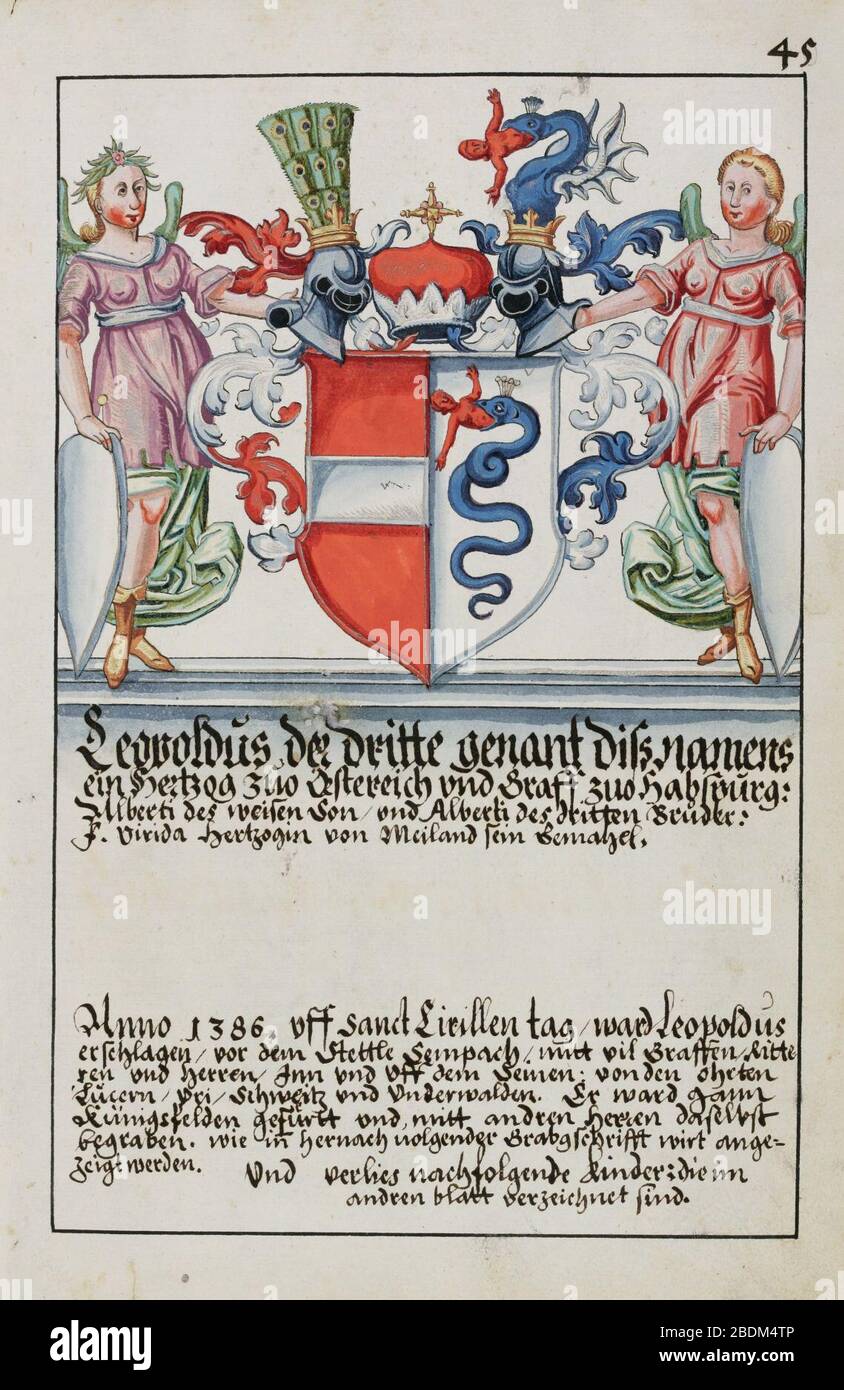 45
Leopoldus der dritte genant diss namens
ein Hertzog zuo Östereich vnd Graff zuo Habspurg:
Alberti des weisen Son / vnd Alberti des dritten Bruder:
F. Virida Hertzogin von Meiland sein Gemahel.
Anno 1386. vff Sanct Cirillen tag / ward Leopoldus
erschlagen / vor dem Stettle Sempach / mitt vil Graffen / Ritte
ren vnd Herren / Inn vnd vff dem Seinen: von den ohrten
Lucern / Vri / Schweitz vnd Vnderwalden. Er ward gann
Künigsfelden gefürtt vnd mitt andren Herren daselbst
begraben. wie in hernach volgender Grabgschrifft wirt ange-
zeigt werden. Vnd verlies nachfolgende Kinder: die im
andren blatt verzeichnet sind.
alamy
Image ID: 2BDM4TP
www.alamy.com